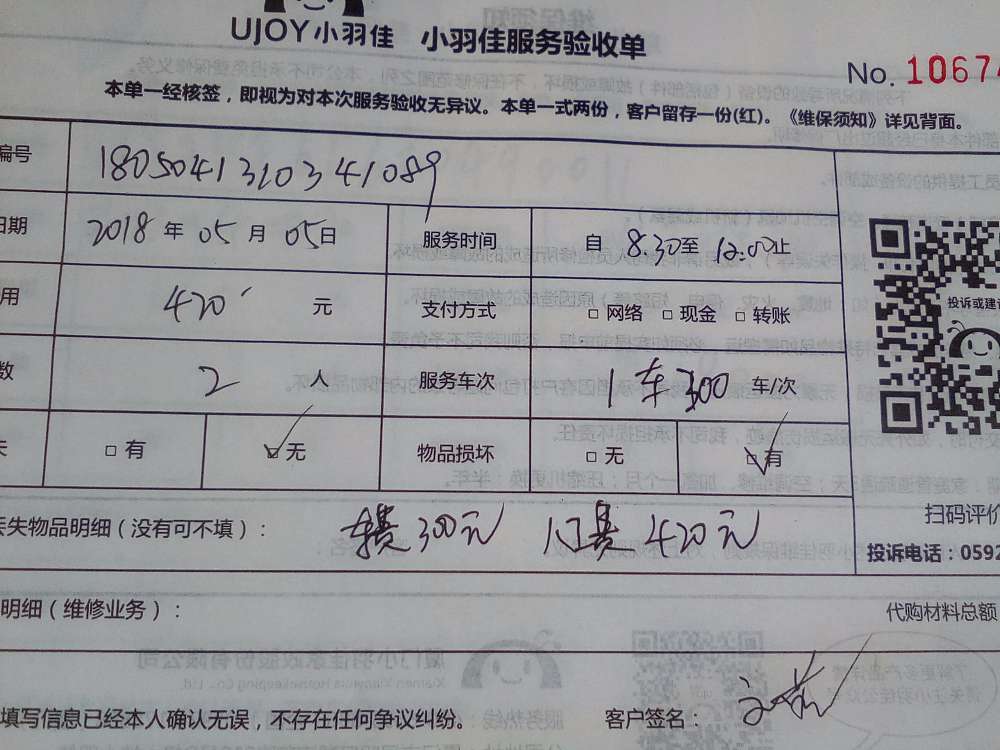 UJOY小羽佳 小羽佳服务验收单
No. 10674
本单一经核签，即视为对本次服务验收无异议。本单一式两份，客户留存一份(红)。《维保须知》详见背面。
编号 1805041310341089
日期 2018 年 05 月 05 日 服务时间 自 8:30 至 12:00 止
用 420 元 支付方式 □ 网络 □ 现金 □ 转账
数 2 人 服务车次 1车300 车/次
失 □ 有 ☑ 无 物品损坏 □ 无 ☑ 有
投诉或建议
丢失物品明细（没有可不填）： 车费300元 人工费420元
扫码评价
投诉电话：0592
明细（维修业务）： 代购材料总额
填写信息已经本人确认无误，不存在任何争议纠纷。 客户签名：